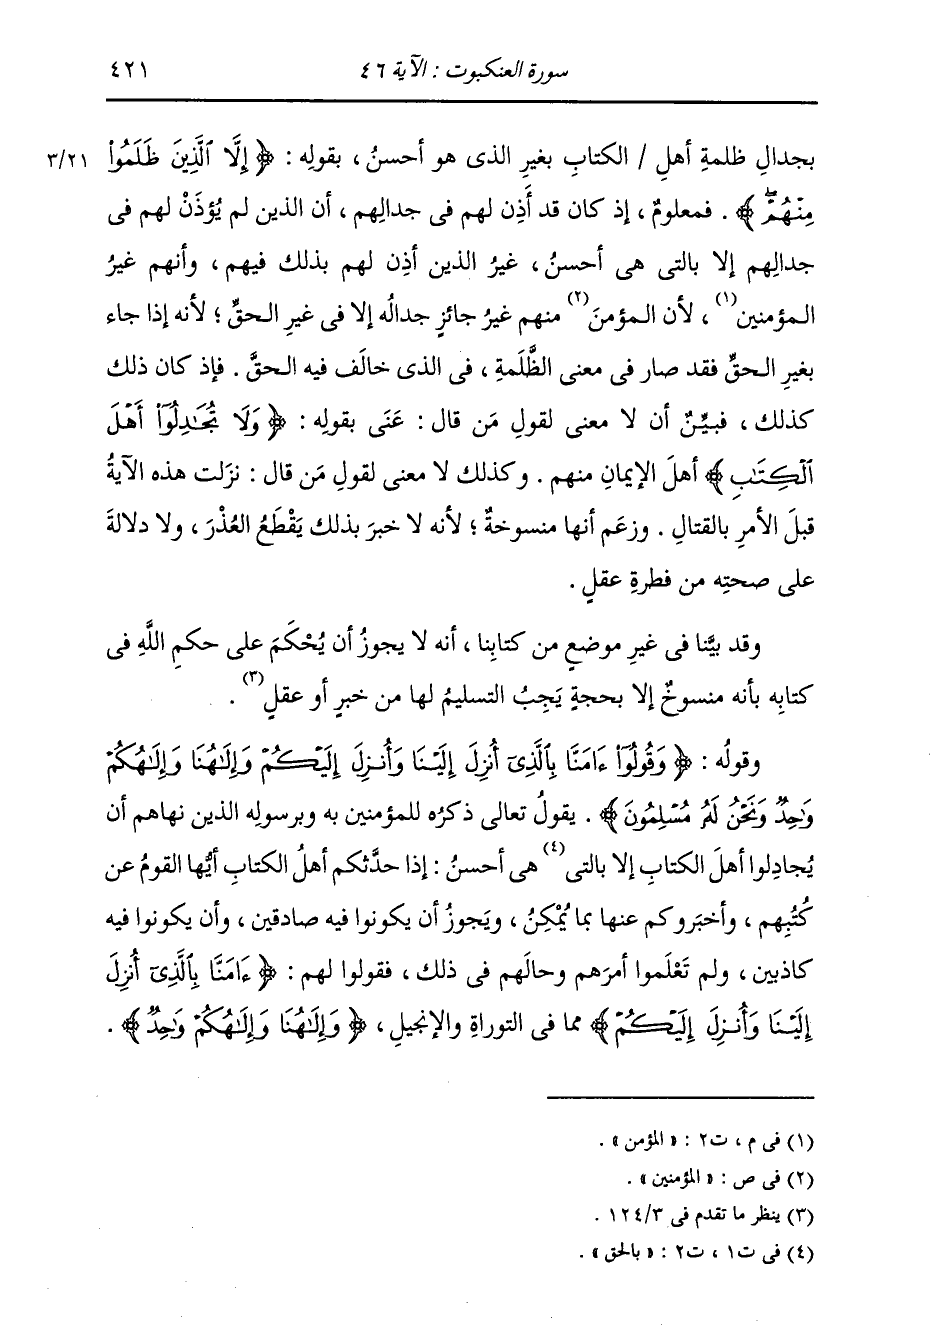 سورة العنكبوت : الآية ٤٦
٤٢١
بجدالِ ظلمةِ أهلِ / الكتابِ بغيرِ الذى هو أحسنُ ، بقولِه : ﴿ إِلَّا ٱلَّذِينَ ظَلَمُواْ
٣/٢١
مِنْهُمْۖ ﴾ . فمعلومٌ ، إذ كان قد أَذِن لهم فى جدالِهم ، أن الذين لم يُؤذَنْ لهم فى
جدالِهم إلا بالتى هى أحسنُ ، غيرُ الذين أذِن لهم بذلك فيهم ، وأنهم غيرُ
المؤمنين(١) ، لأن المؤمنَ(٢) منهم غيرُ جائزٍ جدالُه إلا فى غيرِ الحقِّ ؛ لأنه إذا جاء
بغيرِ الحقِّ فقد صار فى معنى الظَّلَمةِ ، فى الذى خالَف فيه الحقَّ . فإذ كان ذلك
كذلك ، فبيِّنٌ أن لا معنى لقولِ مَن قال : عَنَى بقولِه : ﴿ وَلَا تُجَٰدِلُوٓاْ أَهْلَ
ٱلْكِتَٰبِ ﴾ أهلَ الإيمانِ منهم . وكذلك لا معنى لقولِ مَن قال : نزَلت هذه الآيةُ
قبلَ الأمرِ بالقتالِ . وزعَم أنها منسوخةٌ ؛ لأنه لا خبرَ بذلك يَقْطَعُ العُذْرَ ، ولا دلالةَ
على صحتِه من فطرةِ عقلٍ .
وقد بيَّنا فى غيرِ موضعٍ من كتابِنا ، أنه لا يجوزُ أن يُحْكَمَ على حكمِ اللَّهِ فى
كتابِه بأنه منسوخٌ إلا بحجةٍ يَجِبُ التسليمُ لها من خبرٍ أو عقلٍ(٣) .
وقولُه : ﴿ وَقُولُوٓاْ ءَامَنَّا بِٱلَّذِىٓ أُنزِلَ إِلَيْنَا وَأُنزِلَ إِلَيْكُمْ وَإِلَٰهُنَا وَإِلَٰهُكُمْ
وَٰحِدٌ وَنَحْنُ لَهُۥ مُسْلِمُونَ ﴾ . يقولُ تعالى ذكرُه للمؤمنين به وبرسولِه الذين نهاهم أن
يُجادِلوا أهلَ الكتابِ إلا بالتى(٤) هى أحسنُ : إذا حدَّثكم أهلُ الكتابِ أيُّها القومُ عن
كُتُبِهم ، وأخبَروكم عنها بما يُمْكِنُ ، ويَجوزُ أن يكونوا فيه صادقين ، وأن يكونوا فيه
كاذبين ، ولم تَعْلَموا أمرَهم وحالَهم فى ذلك ، فقولوا لهم : ﴿ ءَامَنَّا بِٱلَّذِىٓ أُنزِلَ
إِلَيْنَا وَأُنزِلَ إِلَيْكُمْ ﴾ مما فى التوراةِ والإنجيلِ ، ﴿ وَإِلَٰهُنَا وَإِلَٰهُكُمْ وَٰحِدٌ ﴾ .
(١) فى م ، ت٢ : « المؤمن » .
(٢) فى ص : « المؤمنين » .
(٣) ينظر ما تقدم فى ١٢٤/٣ .
(٤) فى ت١ ، ت٢ : « بالحق » .